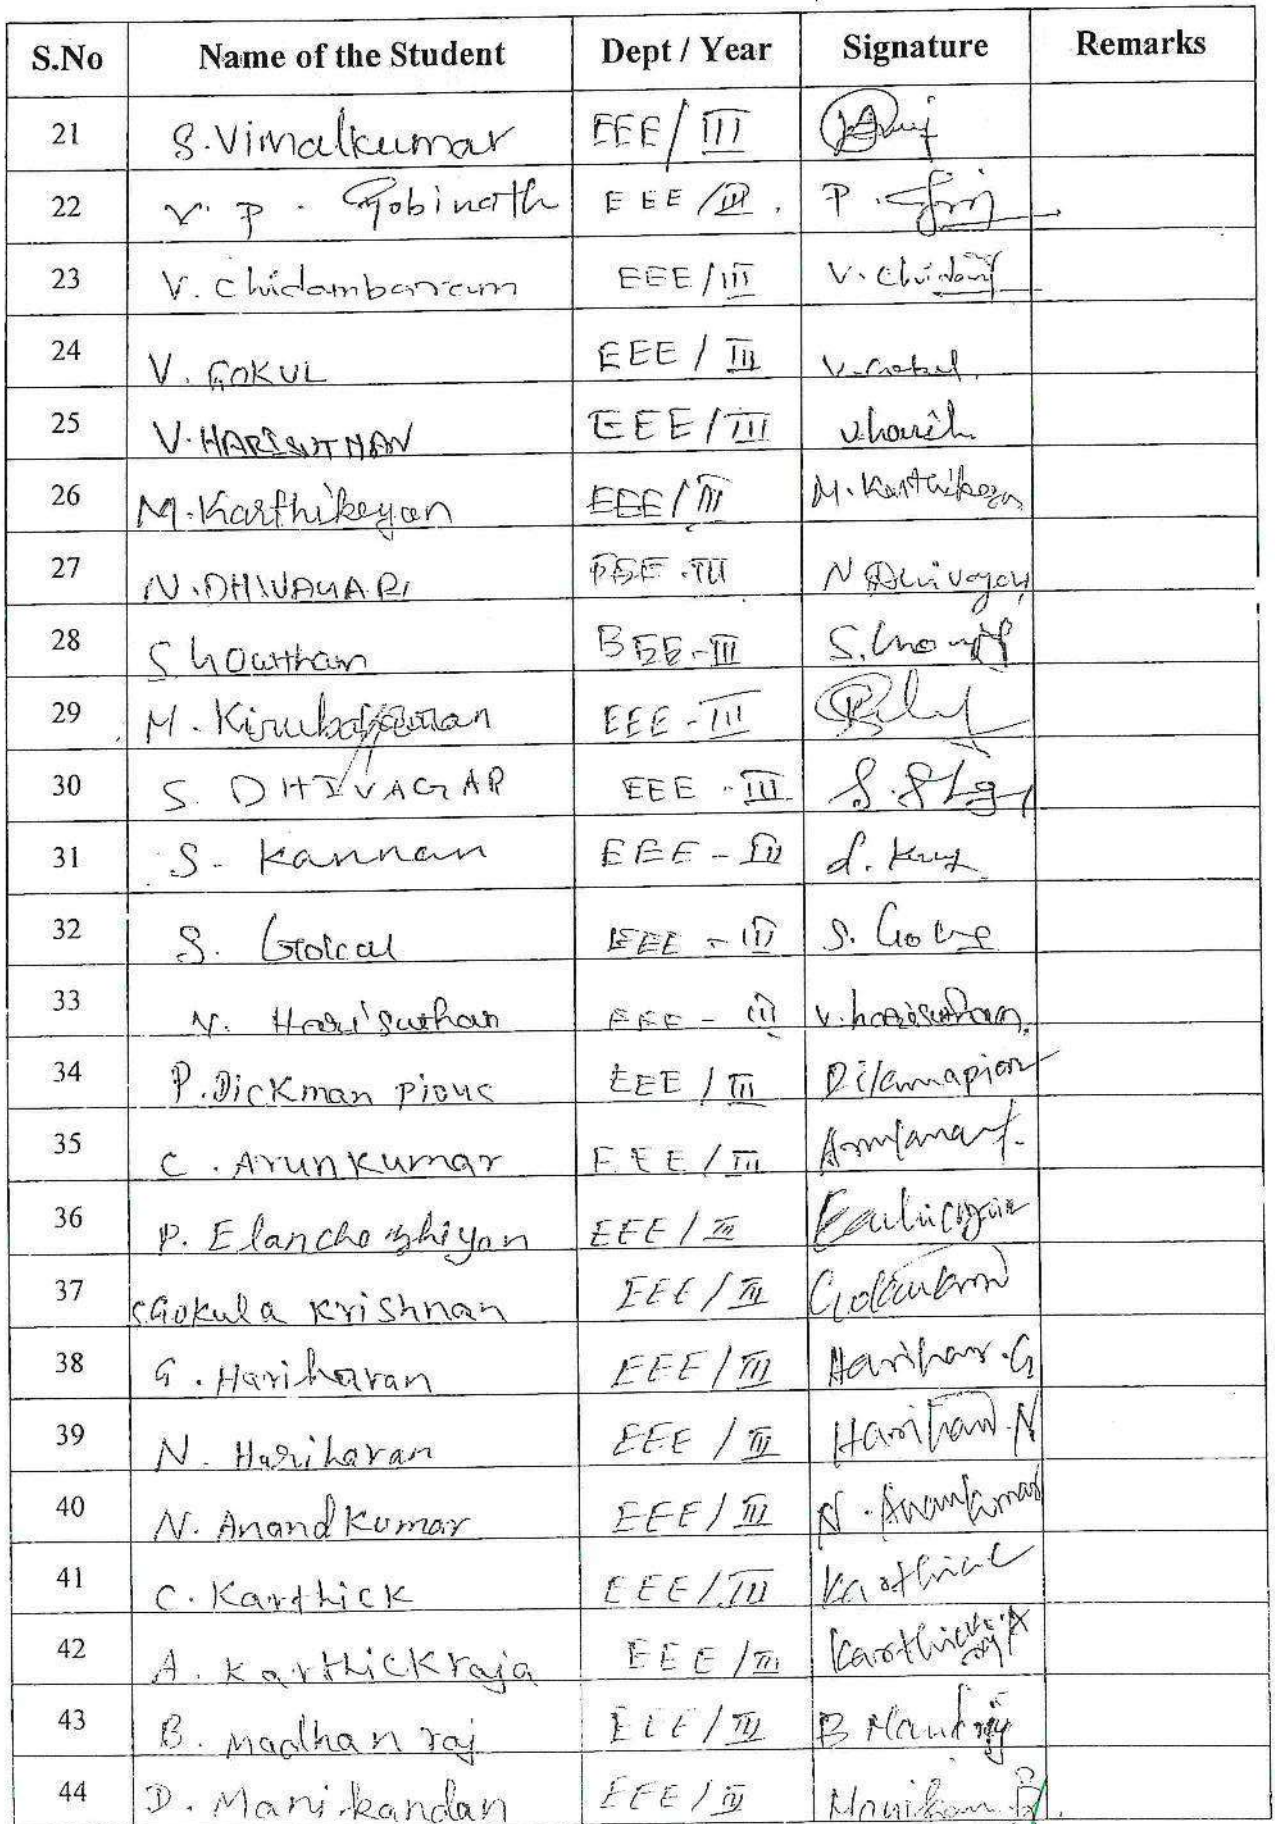 S.No Name of the Student Dept / Year Signature Remarks
21 S.Vimalkumar EEE/III
22 V. P. Gobinath EEE/III. P.
23 V. Chidambaram EEE/III V. Chidam
24 V. GOKUL EEE / III V. Gokul
25 V. HARISUTHAN EEE/III V.harish
26 M. Karthikeyan EEE/III M. Karthikeyan
27 N. DHIVAGAR EEE-III N
28 S Gowtham EEE-III S.
29 M. EEE-III
30 S. DHIVAGAR EEE-III S.
31 S. Kannan EEE-III
32 S. Gokul EEE-III S.
33 V. Harisuthan EEE-III V.harisuthan
34 P.Dickman pious EEE / III
35 C. Arunkumar EEE/III
36 P. Elanchezhiyan EEE/III
37 S.Gokula Krishnan EEE/III
38 G. Hariharan EEE/III Harihar.G
39 N. Hariharan EEE / III Hariharan.N
40 N. Anandkumar EEE/III N.
41 C. Karthick EEE/III Karthick
42 A. Karthickraja EEE/III Karthick
43 B. Madhan raj EEE/III B
44 D. Manikandan EEE/III